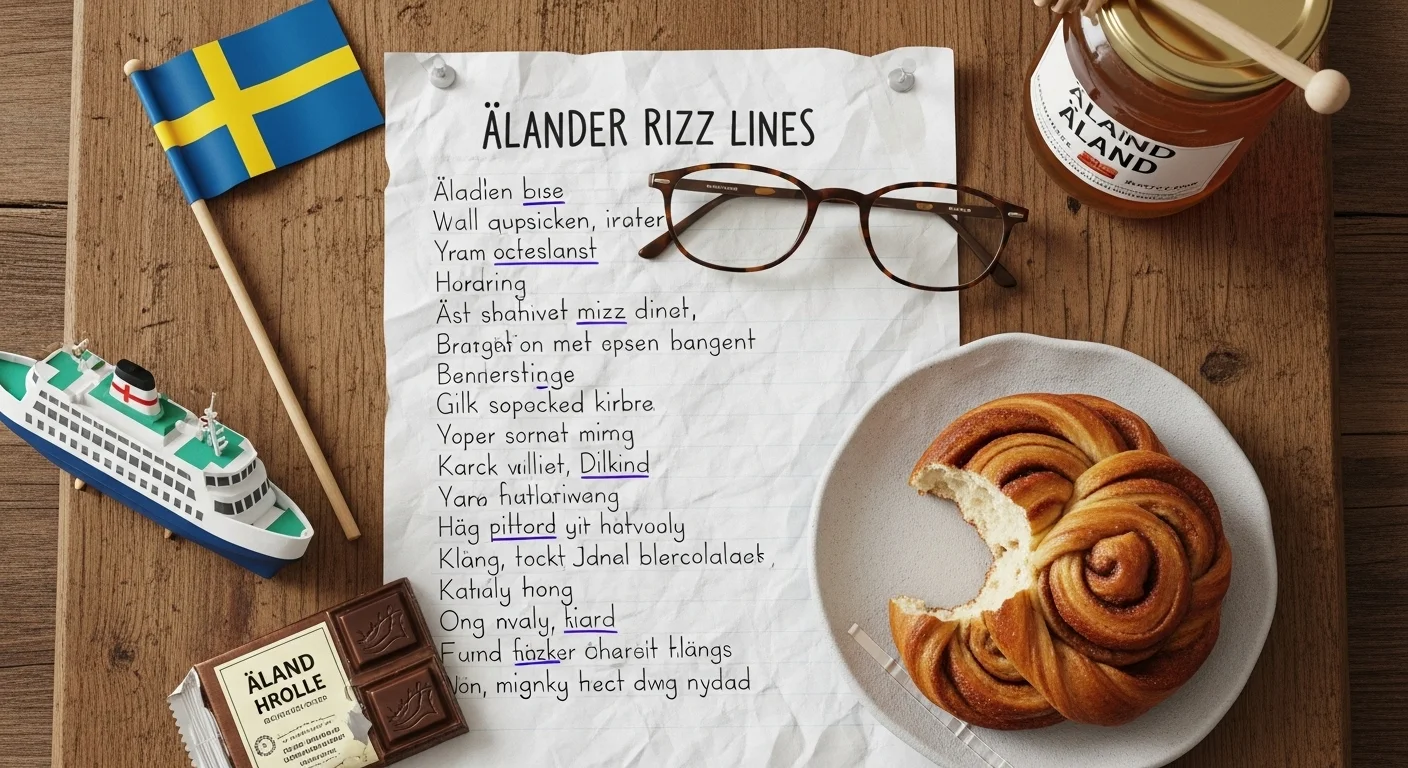 ÄLANDER RIZZ LINES
Äladlen bıse
Wall qupsicken, irater
Yram octeslanst
Hordring
Äst sbahivet mizz dinet,
Bratget on met epsen bangent
Bennerstinge
Gilk sopocked kirbre
Yoper sornet mimg
Karck villiet, Dilkind
Yaro futlariwang
Häg pitford yit hatvooly
Kläng, tockt Jdnel blercolalaek,
Katialy hong
Ong nvaly, hiard
Fumd házker öhareit hlängs
Von, mignky hect dwg nydad
ÄLAIND
ÄLAND
ÄLAND
HROLLE